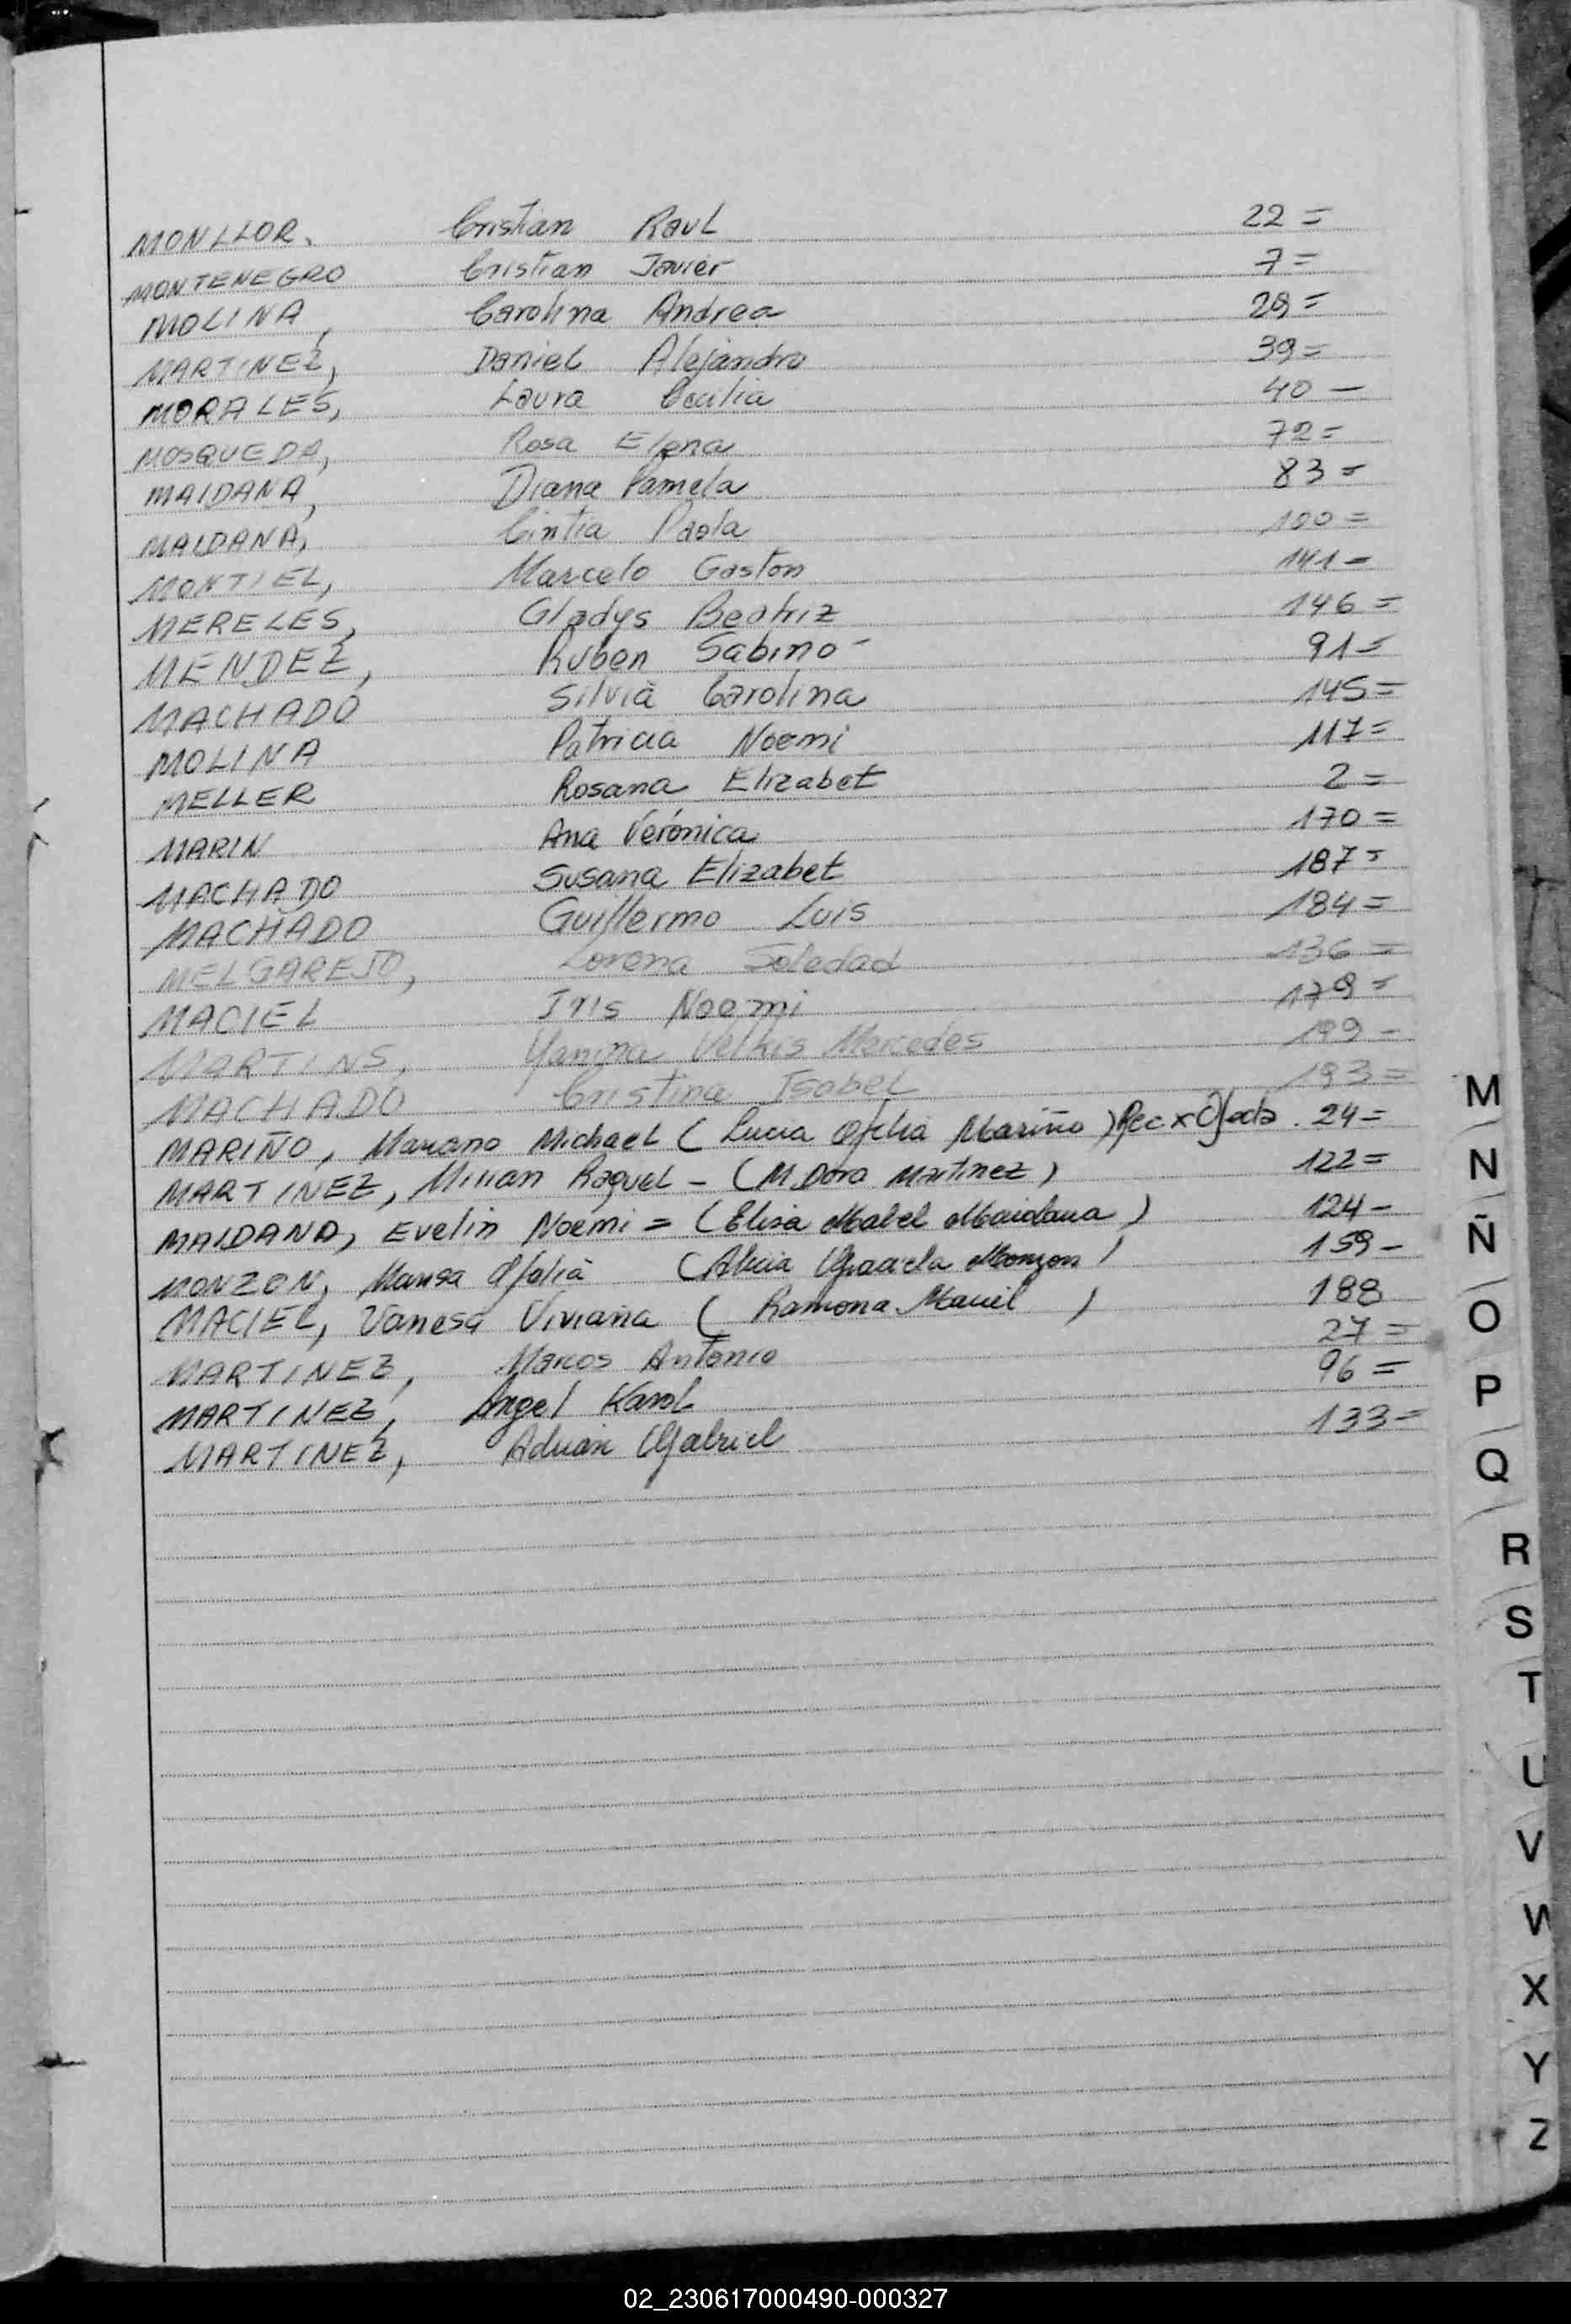 MONLLOR. Cristian Raul 22 =
MONTENEGRO Cristian Javier 7 =
MOLINA, Carolina Andrea 29 =
MARTINEZ, Daniel Alejandro 39 =
MORALES, Laura Cecilia 40 —
MOSQUEDA, Rosa Elena 72 =
MAIDANA, Diana Pamela 83 =
MAIDANA, Cintia Paola 100 =
MONTIEL, Marcelo Gaston 141 =
MERELES, Gladys Beatriz 146 =
MENDEZ, Ruben Sabino - 91 =
MACHADO Silvia Carolina 145 =
MOLINA Patricia Noemi 117 =
MELLER Rosana Elizabet 2 =
MARIN Ana Verónica 170 =
MACHADO Susana Elizabet 187 =
MACHADO Guillermo Luis 184 =
MELGAREJO, Lorena Soledad 136 =
MACIEL Iris Noemi 179 =
MARTINS, Yanina Velkis Mercedes 199 -
MACHADO Cristina Isabel 193 =
MARIÑO, Mariano Michael ( Lucia Ofelia Mariño ) Rec x 24 =
MARTINEZ, Mirian Raquel - (M. Dora Martinez) 122 =
MAIDANA, Evelin Noemi = (Elisa Mabel Maidana ) 124 -
MONZON, Marisa Ofelia (Alicia Graciela Monzon ) 159 -
MACIEL, Vanesa Viviana ( Ramona Maciel ) 188
MARTINEZ, Marcos Antonio 27 =
MARTINEZ, Angel Karol 96 =
MARTINEZ, Adrian Gabriel 133 =
M
N
Ñ
O
P
Q
R
S
T
U
V
W
X
Y
Z
02_230617000490-000327